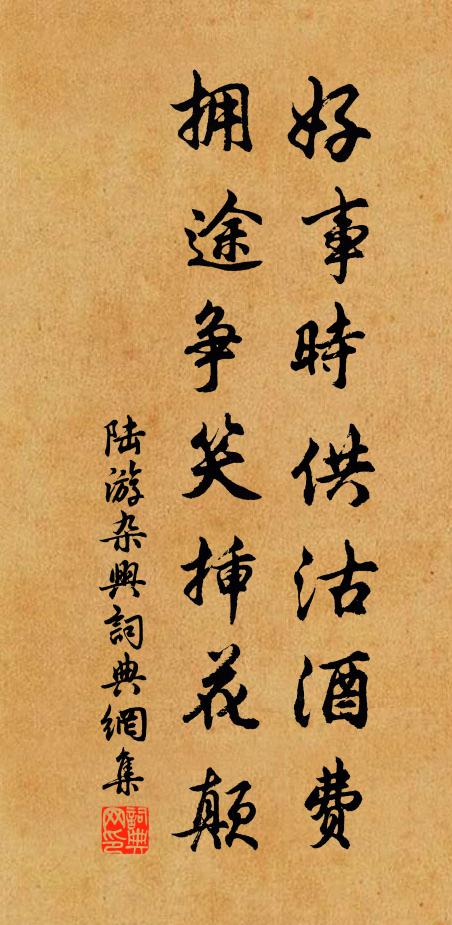 好事時供沽酒费
拥途争笑插花颠
陆游杂興詞典網集
詞典网印